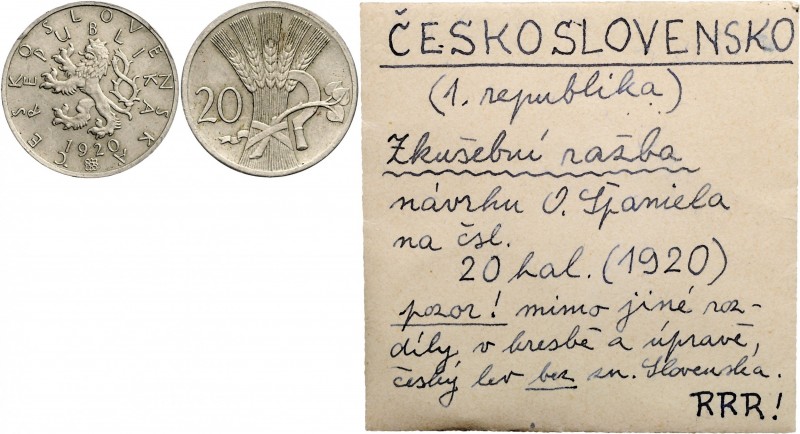 ČESKOSLOVENSKÁ
REPUBLIKA
1920
20
ČESKOSLOVENSKO
(1. republika)
Zkušební ražba
návrhu O. Španiela
na čsl.
20 hal. (1920)
pozor! mimo jiné roz-
díly v kresbě a úpravě,
český lev bez zn. Slovenska.
RRR!